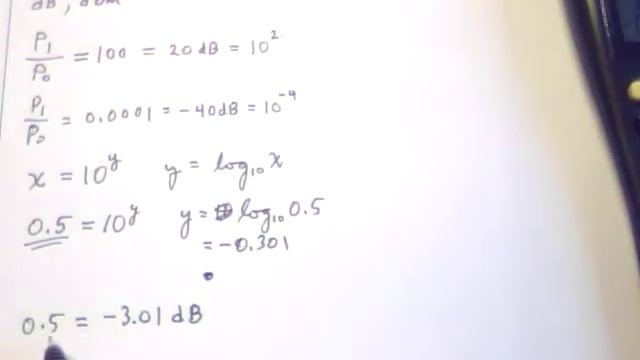 dB, dBm
P₁/P₀ = 100 = 20 dB = 10²
P₁/P₀ = 0.0001 = -40dB = 10⁻⁴
x = 10^y y = log₁₀ x
0.5 = 10^y y = log₁₀ 0.5
= -0.301
0.5 = -3.01 dB